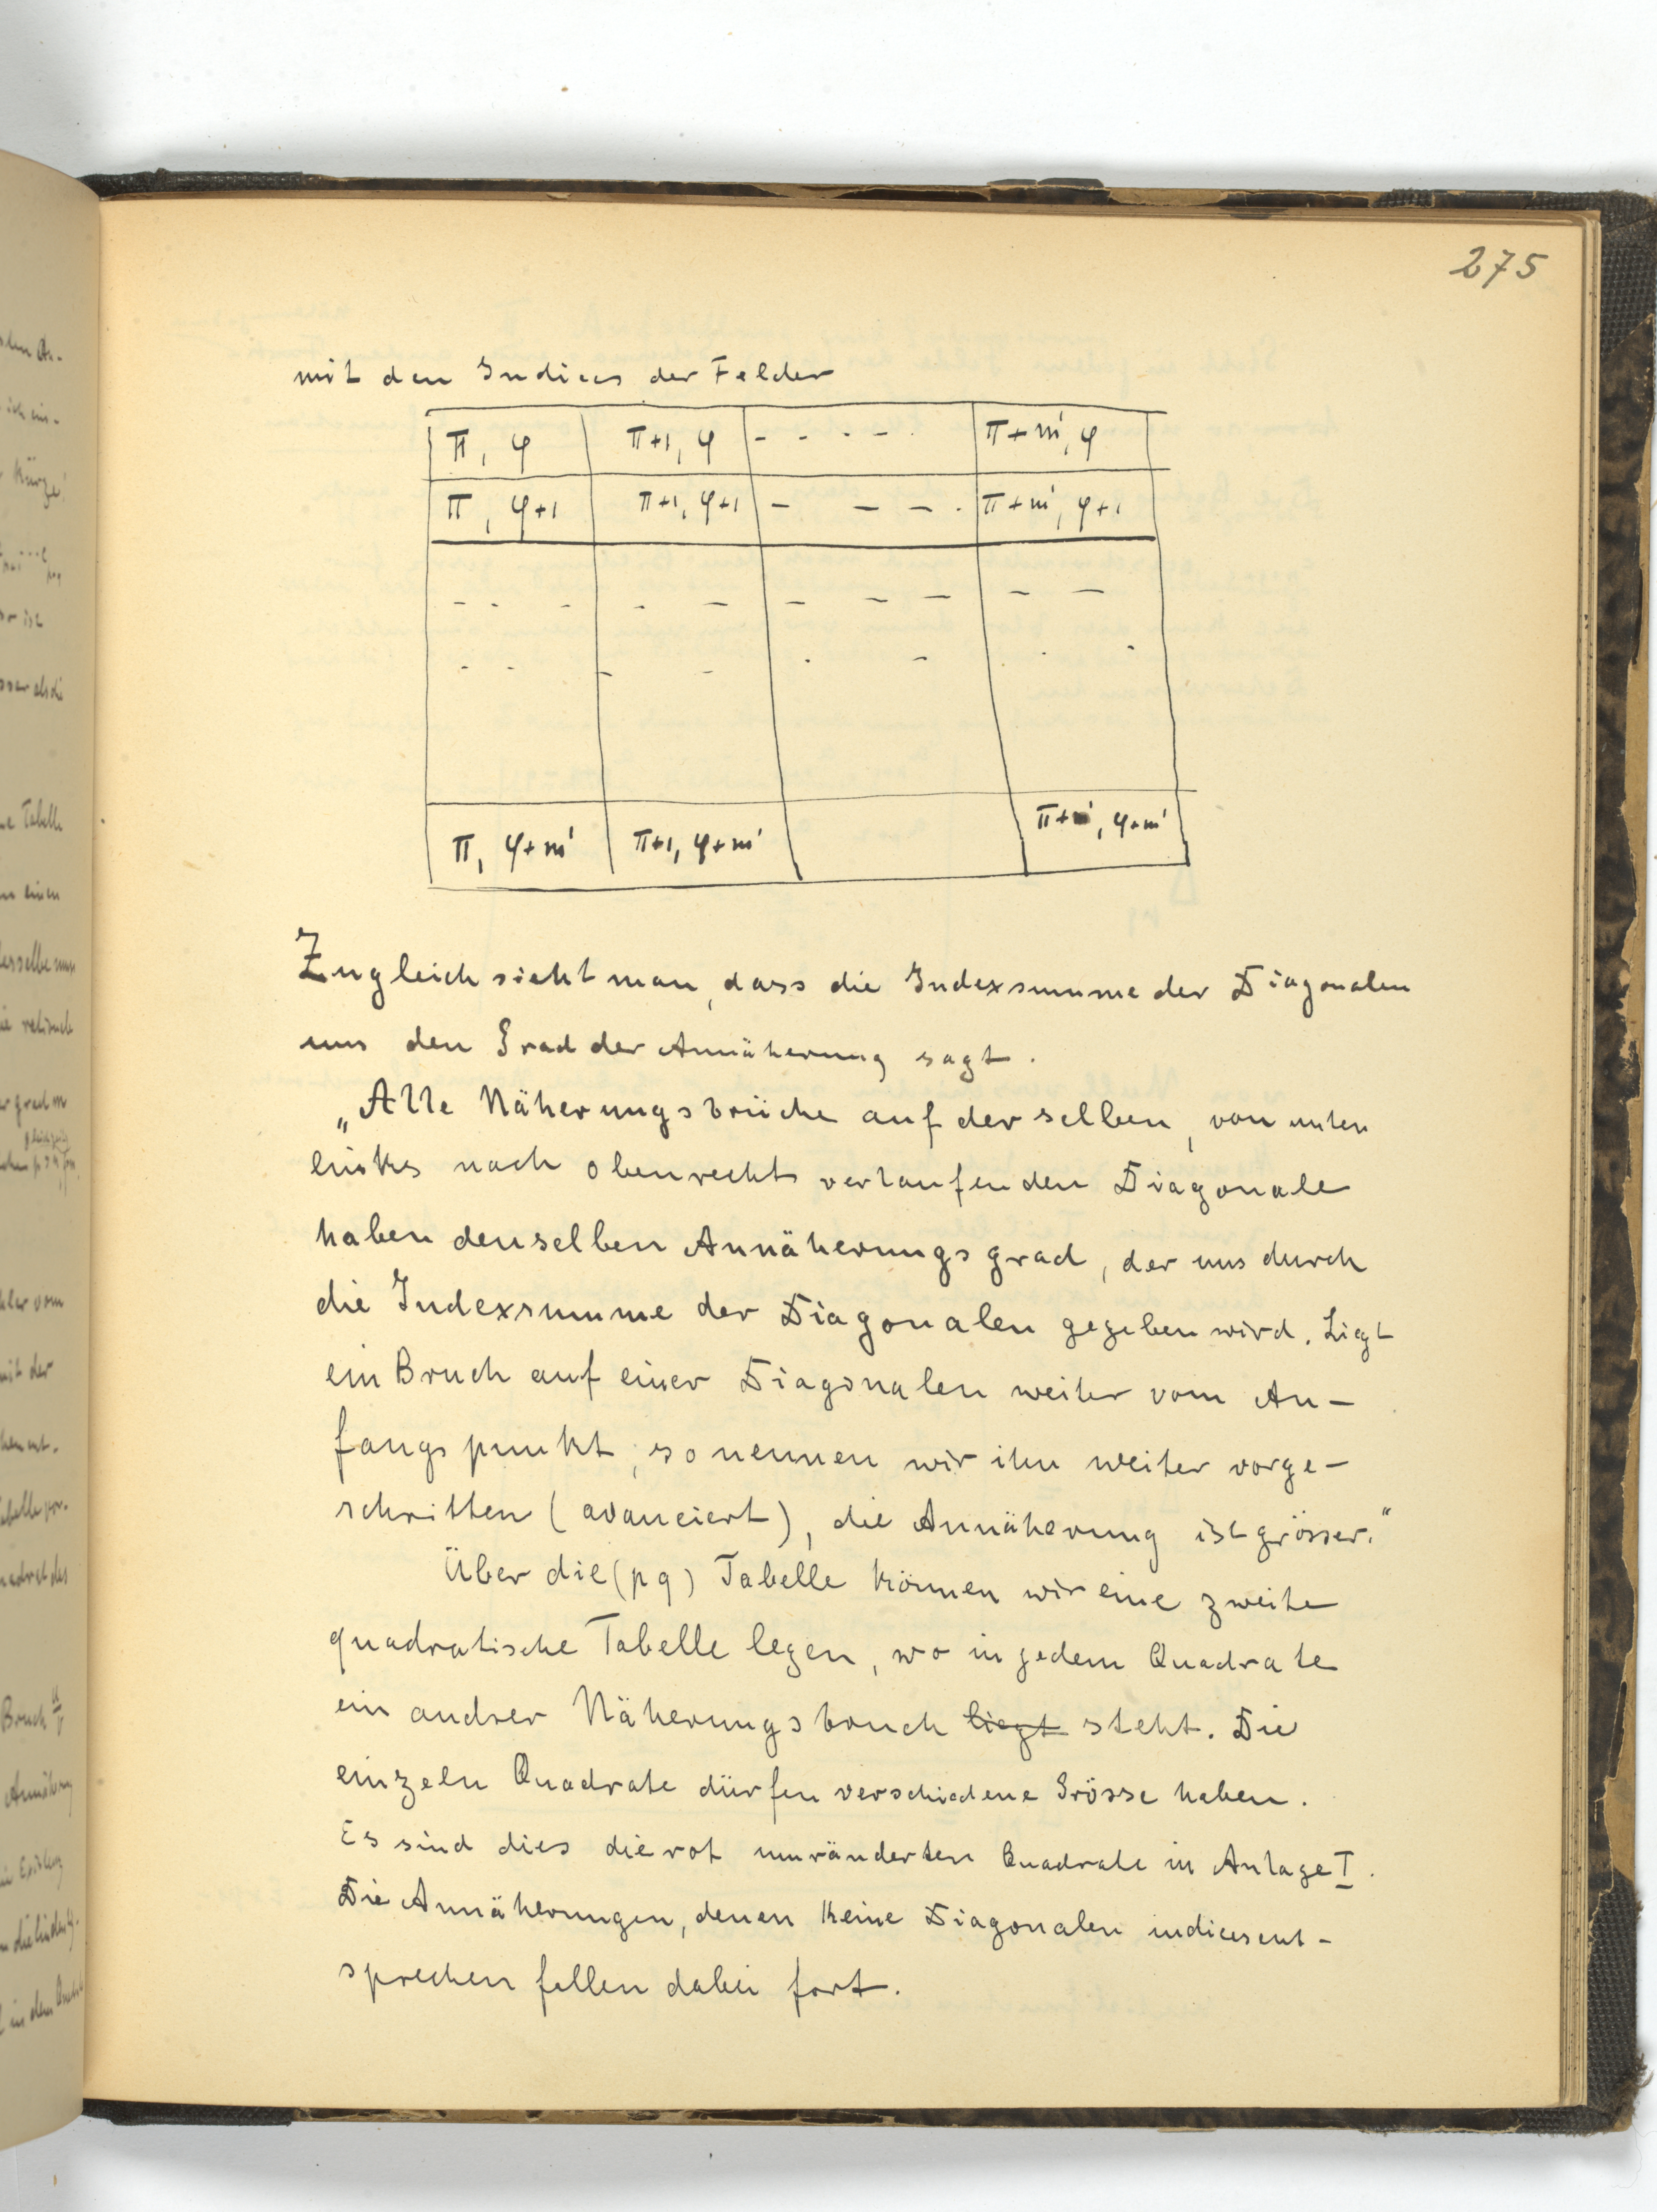 275
mit den Indices der Felder
π, φ π+1, φ - - - - π+m', φ
π, φ+1 π+1, φ+1 - - - . π+m', φ+1
π, φ+m' π+1, φ+m' π+m', φ+m'
Zugleich sieht man, dass die Indexsumme der Diagonalen
uns den Grad der Annäherung sagt.
„Alle Näherungsbrüche auf der selben, von unten
links nach oben rechts verlaufenden Diagonale
haben denselben Annäherungsgrad, der uns durch
die Indexsumme der Diagonalen gegeben wird. Liegt
ein Bruch auf einer Diagonalen weiter vom An-
fangspunkt, so nennen wir ihn weiter vorge-
schritten (avanciert), die Annäherung ist grösser."
Über die (pq) Tabelle können wir eine zweite
quadratische Tabelle legen, wo in jedem Quadrate
ein andrer Näherungsbruch liegt steht. Die
einzeln Quadrate dürfen verschiedene Grösse haben.
Es sind dies die rot umränderten Quadrate in Anlage I.
Die Annäherungen, denen keine Diagonalen indices ent-
sprechen fallen dabei fort.